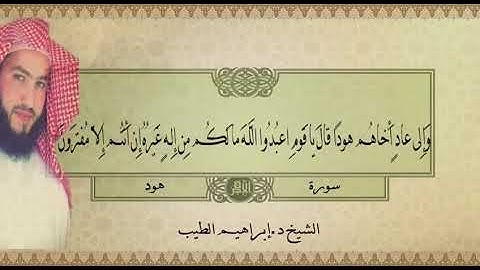 وَإِلَى عَادٍ أَخَاهُمْ هُودًا قَالَ يَا قَوْمِ اعْبُدُوا اللَّهَ مَا لَكُم مِّنْ إِلَهٍ غَيْرُهُ إِنْ أَنتُمْ إِلَّا مُفْتَرُونَ
سورة هود
الشيخ د.إبراهيم الطيب